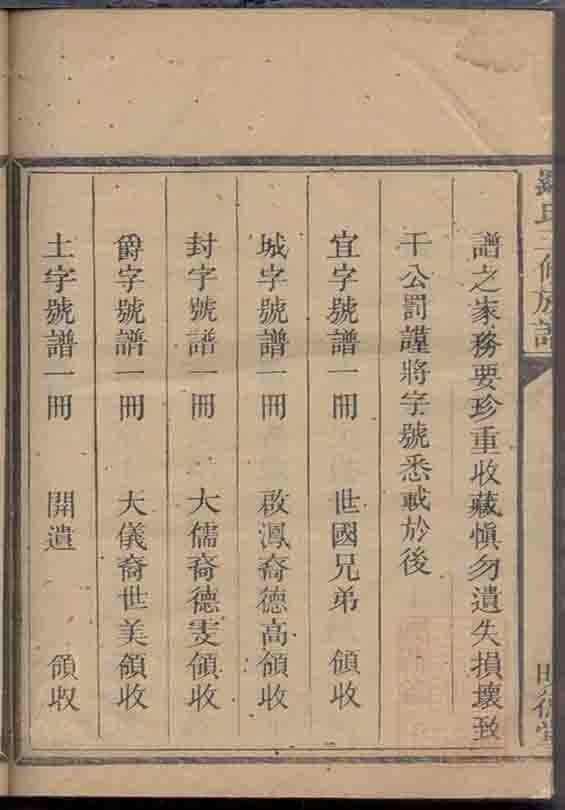 氏二修族譜
譜之家務要珍重收藏愼勿遺失損壞致
千公罰謹將字號悉載於後
宜字號譜一冊 世國兄弟 領收
城字號譜一冊 啟鳳裔德高領收
封字號譜一冊 大儒裔德雯領收
爵字號譜一冊 大儀裔世美領收
土字號譜一冊 開遣 領収